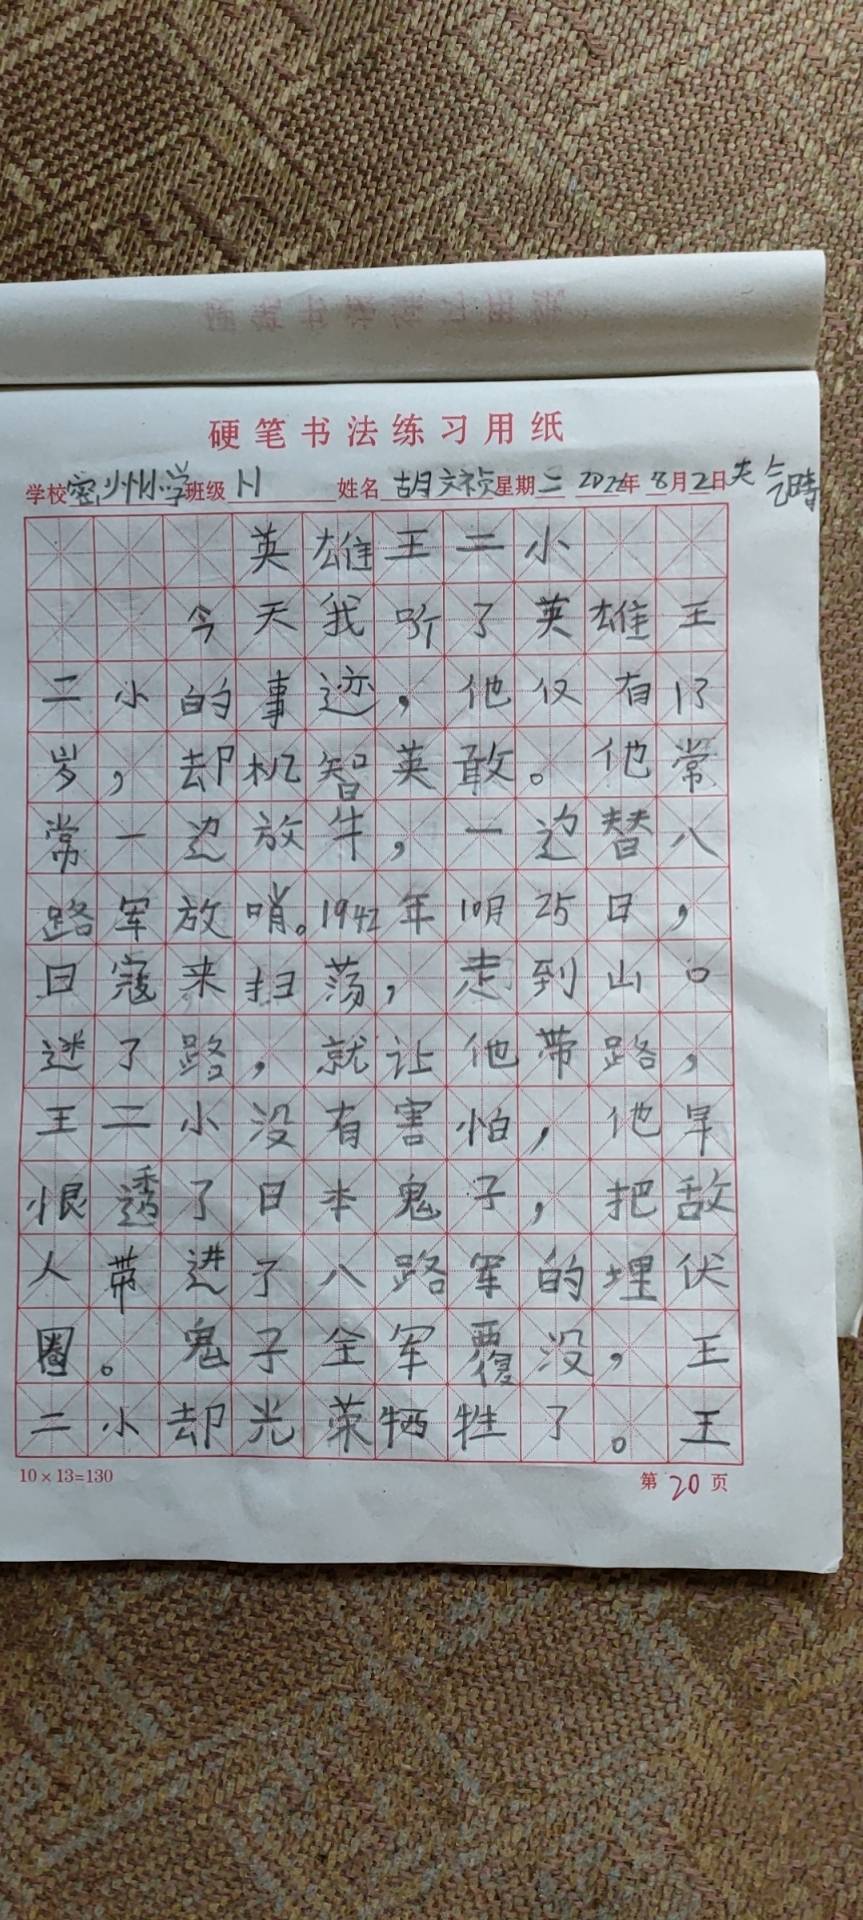 硬笔书法练习用纸
学校密州小学班级1.1姓名胡文祯星期二 2022年8月2日天气晴
英雄王二小
今天我听了英雄王
二小的事迹，他仅有13
岁，却机智英敢。他常
常一边放牛，一边替八
路军放哨。1942年10月25日，
日寇来扫荡，走到山口
迷了路，就让他带路，
王二小没有害怕，他早
恨透了日本鬼子，把敌
人带进了八路军的埋伏
圈。鬼子全军覆没，王
二小却光荣牺牲了。王
10×13=130
第20页